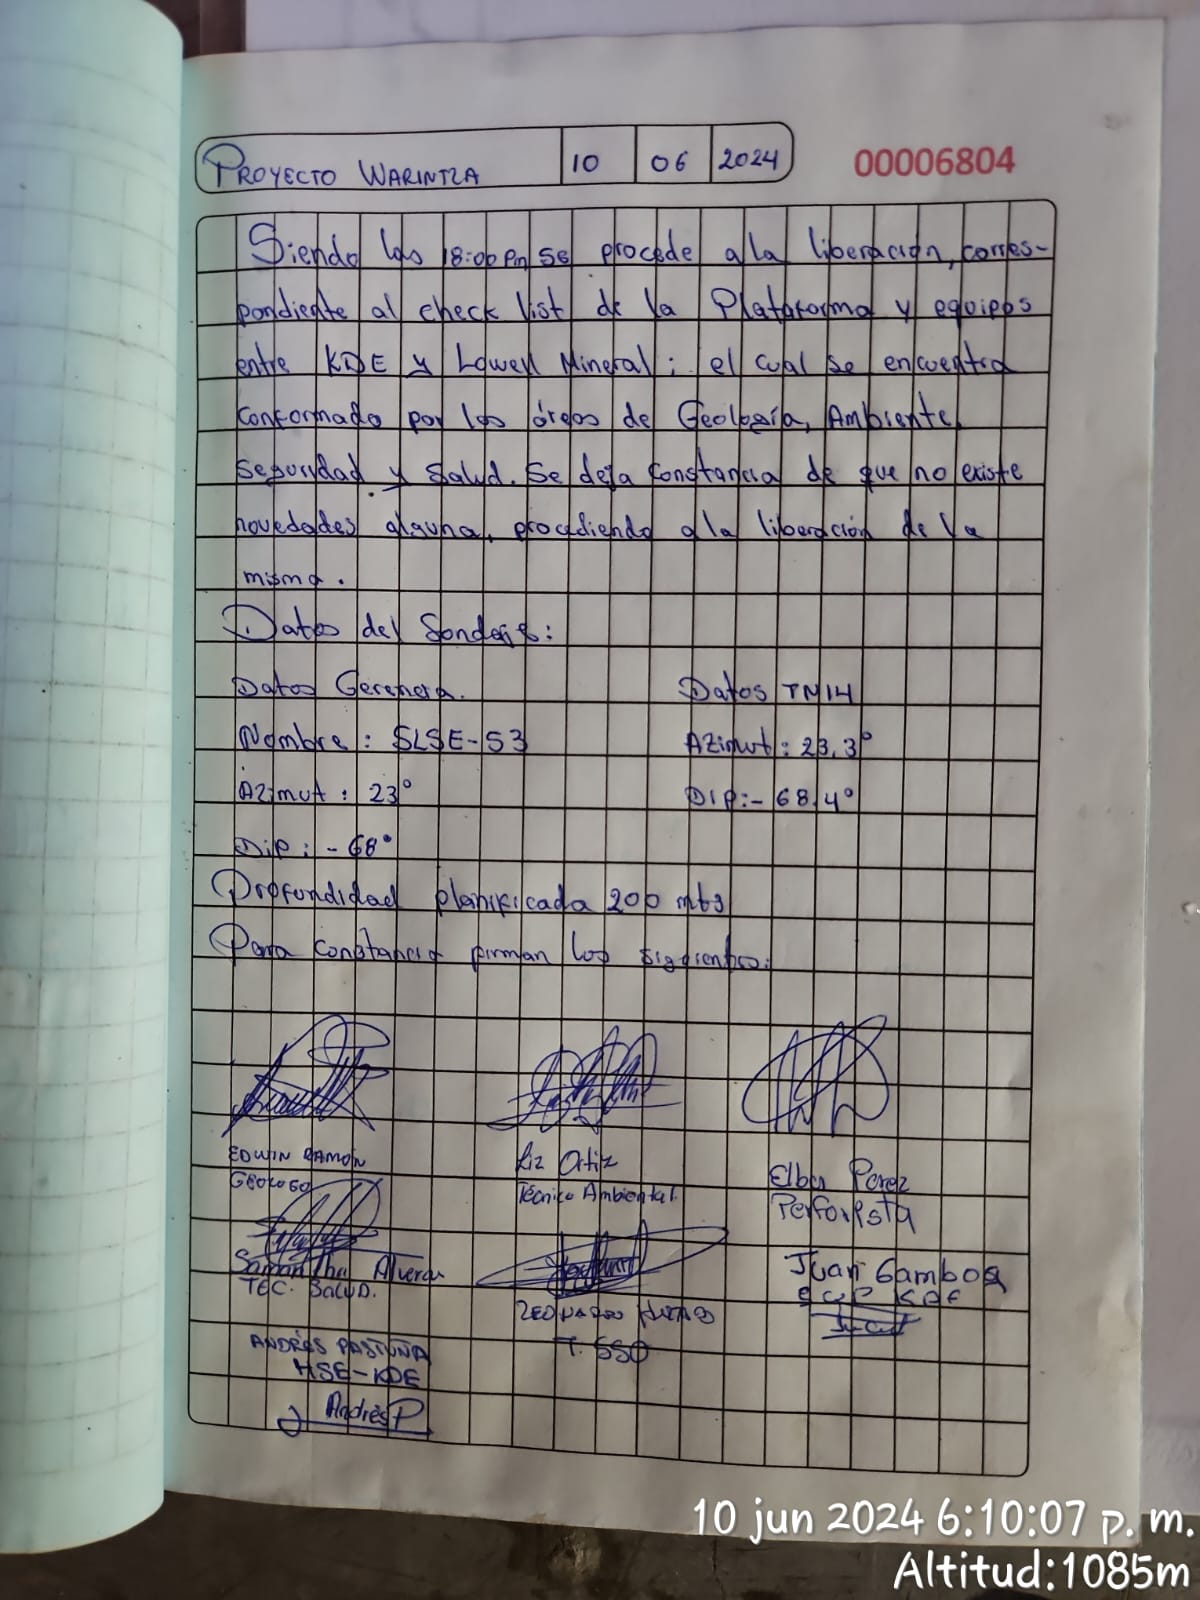 PROYECTO WARINTZA 10 06 2024 00006804
Siendo las 18:00 pm se procede a la liberación, corres-
pondiente al check list de la Plataforma y equipos
entre KDE y Lowell Mineral; el cual se encuentra
conformado por las áreas de Geología, Ambiente,
seguridad y Salud. Se deja constancia de que no existe
novedades alguna, procediendo a la liberación de la
misma.
Datos del Sondeje:
Datos Gerenera. Datos TN14
Nombre: SLSE-53 Azimut: 23.3°
Azimut: 23° DIP:- 68.4°
Dip: - 68°
Profundidad planificada 200 mts
Para constancia firman los siguientes:
EDWIN RAMON Liz Ortiz Elber Perez
GEOLOGO Técnico Ambiental Perforista
Samantha Alverca Juan Gamboa
TEC. SALUD. KDE
LEONARDO
ANDRÉS PASTUÑA T. SSO
HSE-KDE
Andrés P
10 jun 2024 6:10:07 p. m.
Altitud:1085m